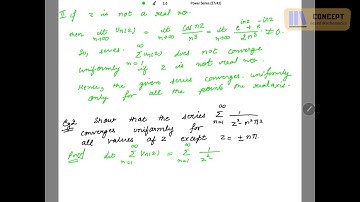 Power Series (17/41)
CONCEPT
II If z is not a real no.
then lt Vn(z) = lt cos nz / n³ = lt e^{inz} + e^{-inz} / 2n³ ≠ 0.
n→∞ n→∞ n→∞
So, series ∑ Vn(z) does not converge
uniformly if z is not real no.
Hence, the given series converges uniformly
only for all the points on the real axis.
Ex2 Show that the series ∑_{n=1}^{∞} 1 / z² - n²π²
converges uniformly for
all values of z except z = ± nπ.
Proof: let ∑_{n=1}^{∞} Vn(z) = ∑_{n=1}^{∞} 1 / z² -